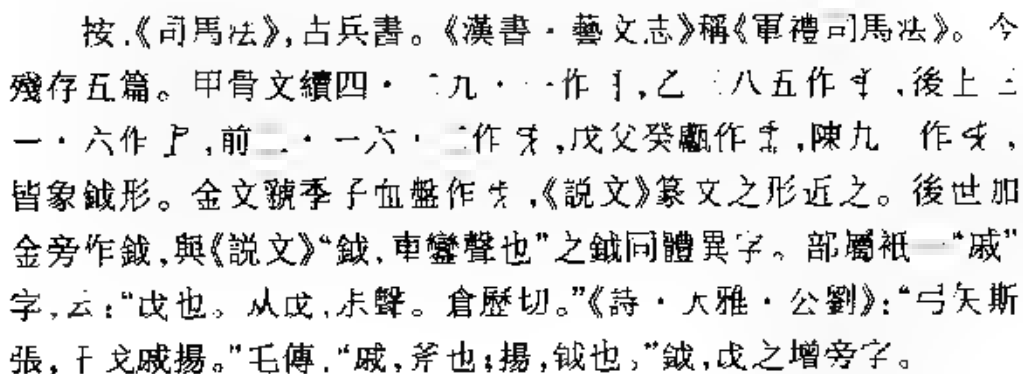 按,《司馬法》,古兵書。《漢書·藝文志》稱《軍禮司馬法》。今
殘存五篇。甲骨文續四·九·作,乙八五作,後上三
一·六作,前·一六·作,戊父癸甗作,陳九作,
皆象鉞形。金文虢季子白盤作,《説文》篆文之形近之。後世加
金旁作鉞,與《説文》“鉞,車鑾聲也”之鉞同體異字。部屬祇一“戚”
字,云:“戉也。从戉,尗聲。倉歷切。”《詩·大雅·公劉》:“弓矢斯
張,干戈戚揚。”毛傳,“戚,斧也;揚,鉞也。”鉞,戉之增旁字。